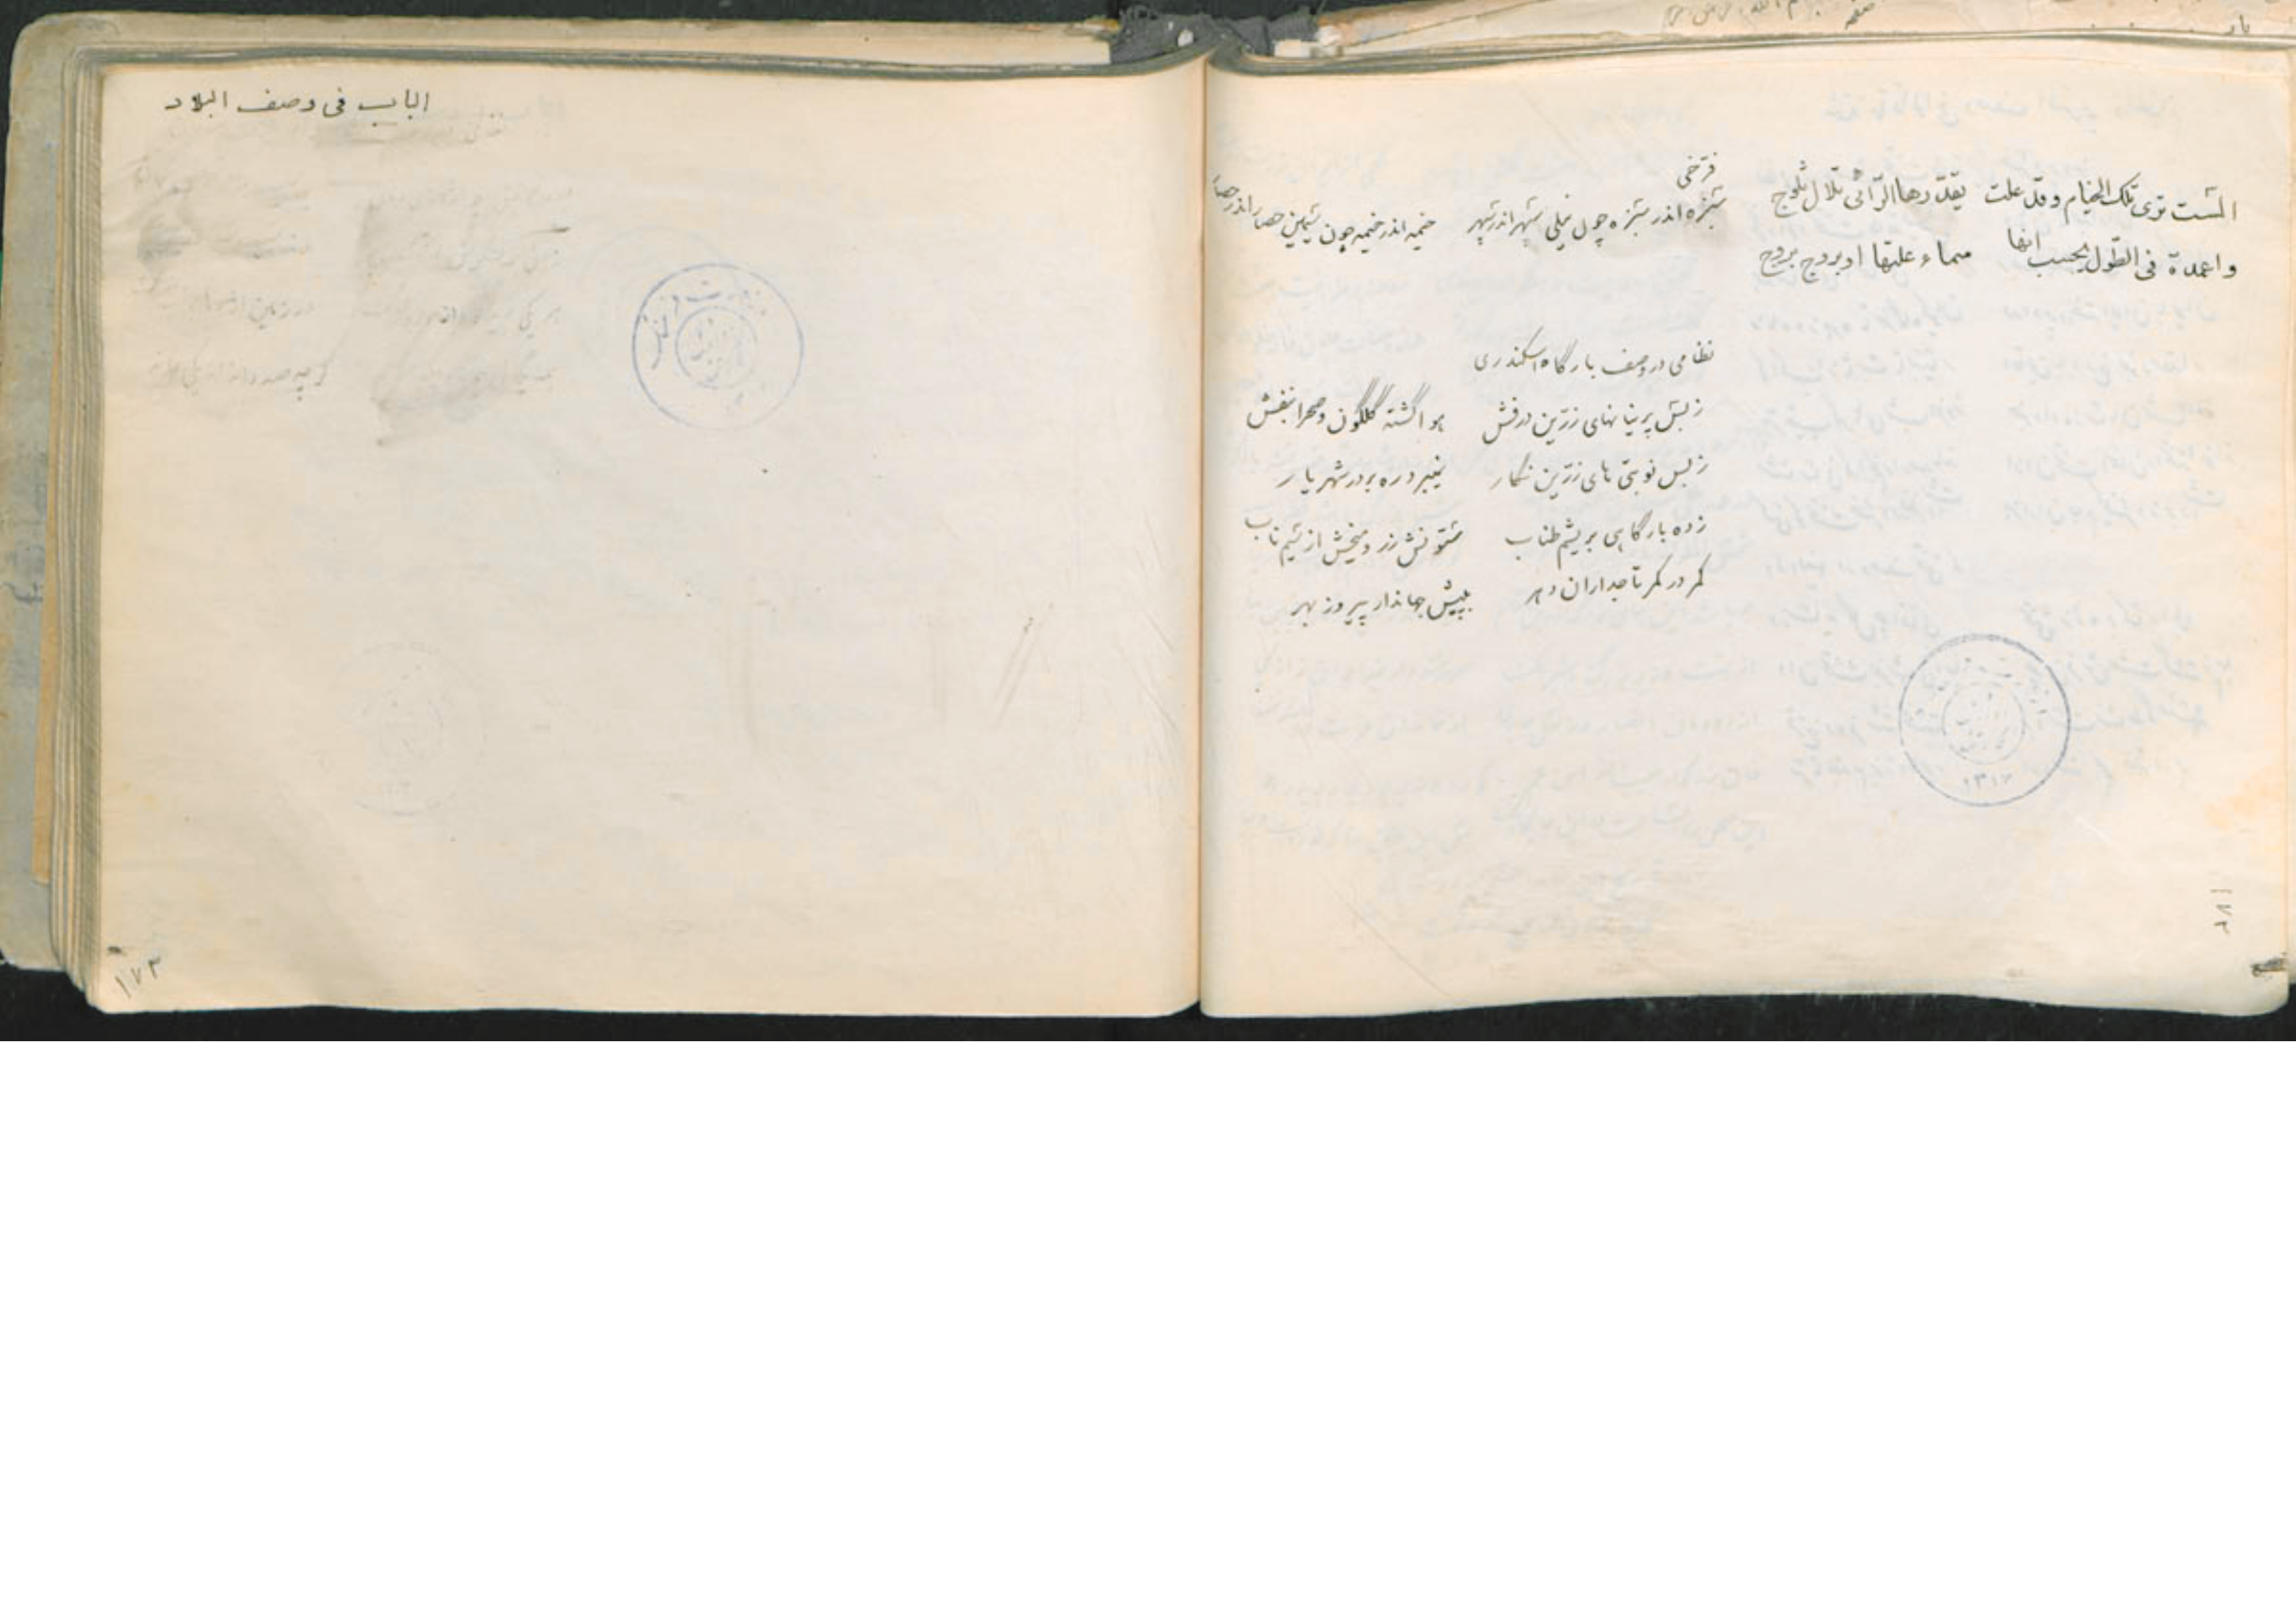 الست تری تلک الخیام و قد علت یقدّرها الرّائی تلال ثلوج
و اعمدة فی الطّول یحسب انها سماء علیها او بروج بروج
فرّخی
سبزه اندر سبزه چون نیلی سپهر اندر سپهر خیمه اندر خیمه چون سیمین حصار اندر حصار
نظامی در وصف بارگاه اسکندری
ز بس پرنیانهای زرّین درفش هوا گشته گلگون و صحرا بنفش
ز بس نوبتی های زرّین نگار ره بر در شهریار
زده بارگاهی بریشم طناب ستونش زر و میخش از سیم ناب
کمر در کمر تاجداران دهر بپیش جهاندار پیروز بهر
۱۳۱۷
۱۷۲
الباب فی وصف البلاد
۱۷۳